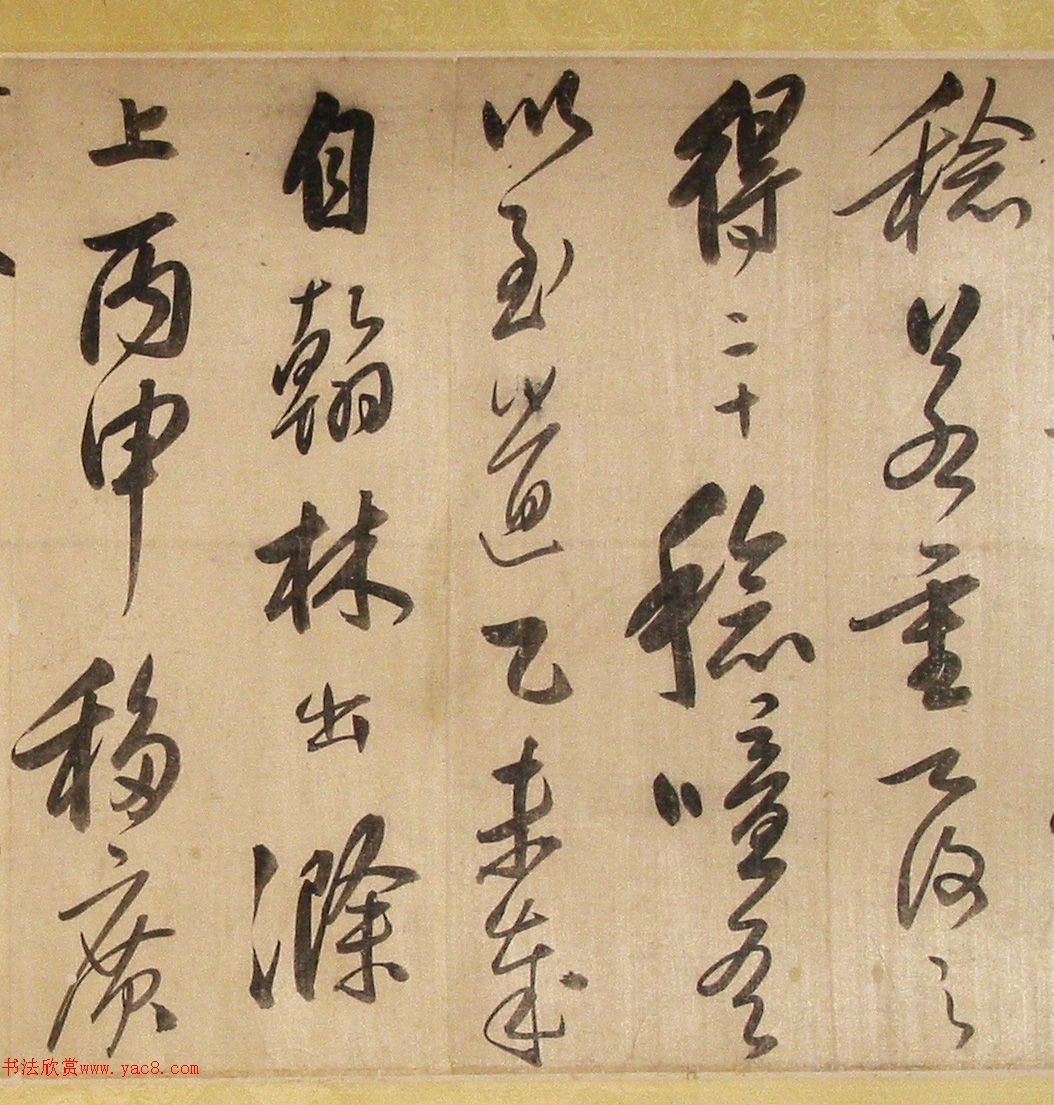 稔若重覆之
得二十稔噫吾
以至道乙未歲
自翰林出滁
上丙申移廣
书法欣赏www.yac8.com